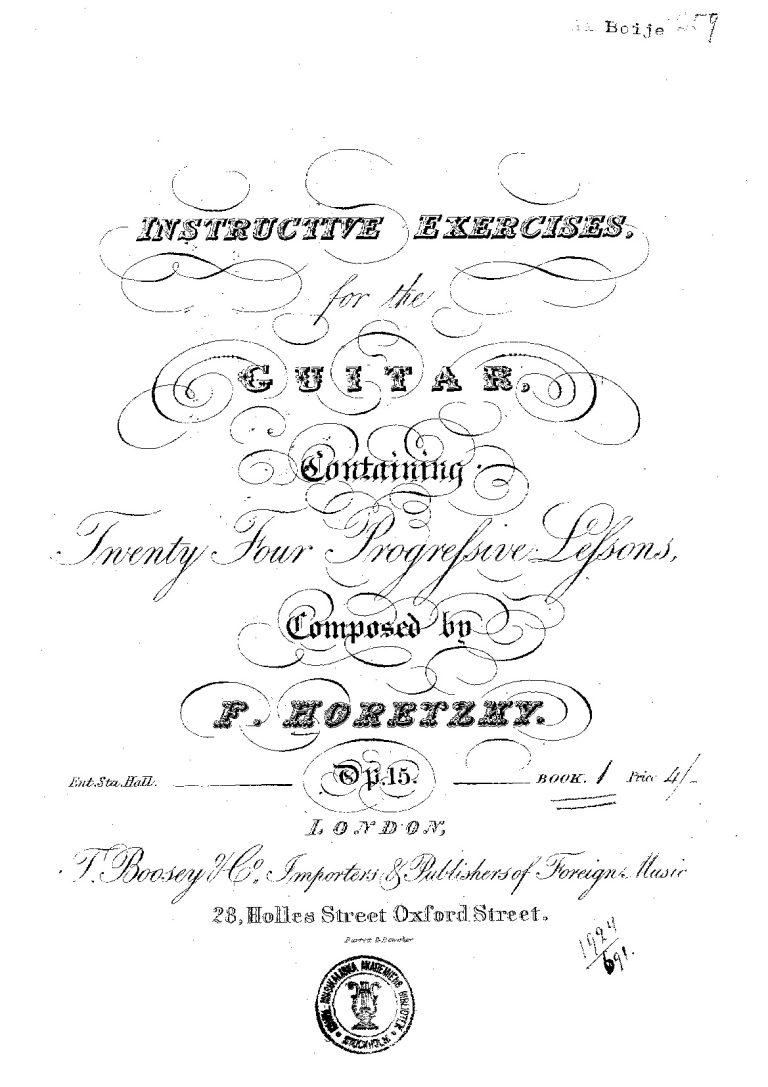 Boije 259
INSTRUCTIVE EXERCISES.
for the
GUITAR,
Containing
Twenty Four Progreſsive Leſsons,
Composed by
F. HORETZKY.
Ent. Sta. Hall. Op. 15. BOOK. 1 Price 4/-
LONDON,
T. Boosey & Co. Importers & Publishers of Foreign Music
28, Holles Street Oxford Street.
1924
691.
KONGL. MUSIKALISKA AKADEMIENS BIBLIOTEK
STOCKHOLM